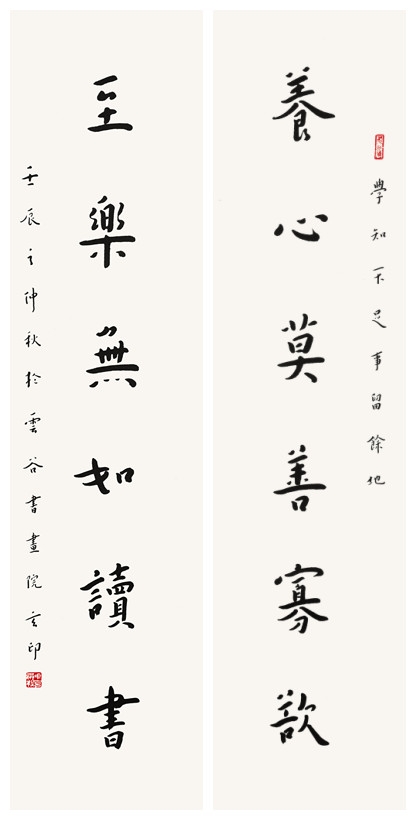 學知不足事留餘地
養心莫善寡欲
至樂無如讀書
壬辰之仲秋於雲谷書畫院玄印